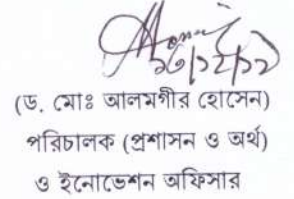 ১৩/১২/১১
(ড. মোঃ আলমগীর হোসেন)
পরিচালক (প্রশাসন ও অর্থ)
ও ইনোভেশন অফিসার